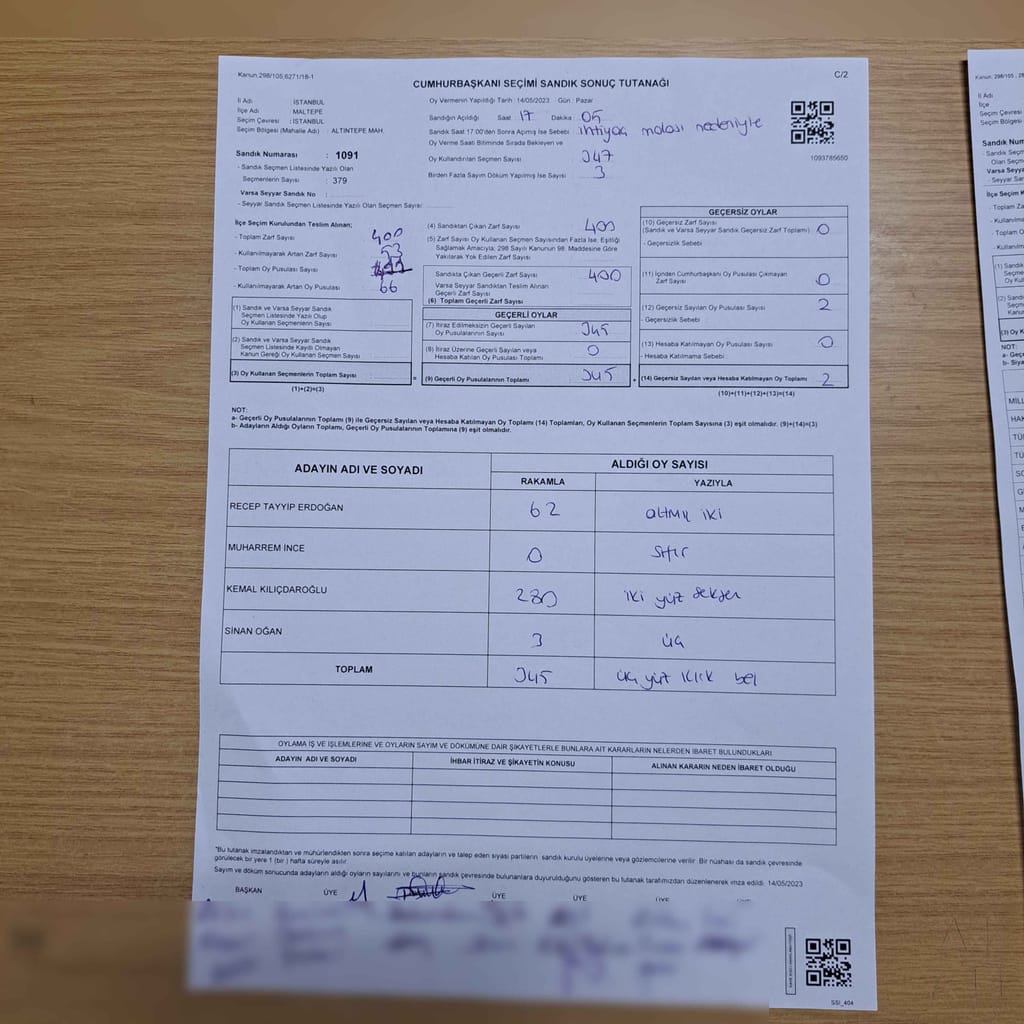 Kanun.298/105,6271/18-1
C/2
CUMHURBAŞKANI SEÇİMİ SANDIK SONUÇ TUTANAĞI
İl Adı : İSTANBUL
İlçe Adı : MALTEPE
Seçim Çevresi : İSTANBUL
Seçim Bölgesi (Mahalle Adı) : ALTINTEPE MAH.
Sandık Numarası : 1091
- Sandık Seçmen Listesinde Yazılı Olan
Seçmenlerin Sayısı : 379
Varsa Seyyar Sandık No :
- Seyyar Sandık Seçmen Listesinde Yazılı Olan Seçmen Sayısı:
Oy Vermenin Yapıldığı Tarih : 14/05/2023 Gün : Pazar
Sandığın Açıldığı Saat 17 Dakika 05
Sandık Saat 17:00'den Sonra Açımış İse Sebebi ihtiyaç molası nedeniyle
Oy Verme Saati Bitiminde Sırada Bekleyen ve
Oy Kullandırılan Seçmen Sayısı 347
Birden Fazla Sayım Döküm Yapılmış İse Sayısı 3
1093785650
İlçe Seçim Kurulundan Teslim Alınan;
- Toplam Zarf Sayısı 400
- Kullanılmayarak Artan Zarf Sayısı 53
- Toplam Oy Pusulası Sayısı
- Kullanılmayarak Artan Oy Pusulası 66
(1) Sandık ve Varsa Seyyar Sandık
Seçmen Listesinde Yazılı Olup
Oy Kullanan Seçmenlerin Sayısı
(2) Sandık ve Varsa Seyyar Sandık
Seçmen Listesinde Kayıtlı Olmayan
Kanun Gereği Oy Kullanan Seçmen Sayısı
(3) Oy Kullanan Seçmenlerin Toplam Sayısı
(1)+(2)=(3)
(4) Sandıktan Çıkan Zarf Sayısı 400
(5) Zarf Sayısı Oy Kullanan Seçmen Sayısından Fazla İse, Eşitliği
Sağlamak Amacıyla; 298 Sayılı Kanunun 98. Maddesine Göre
Yakılarak Yok Edilen Zarf Sayısı
Sandıkta Çıkan Geçerli Zarf Sayısı 400
Varsa Seyyar Sandıktan Teslim Alınan
Geçerli Zarf Sayısı
(6) Toplam Geçerli Zarf Sayısı
GEÇERLİ OYLAR
(7) İtiraz Edilmeksizin Geçerli Sayılan
Oy Pusulalarının Sayısı 345
(8) İtiraz Üzerine Geçerli Sayılan veya
Hesaba Katılan Oy Pusulası Toplamı 0
= (9) Geçerli Oy Pusulalarının Toplamı 345 +
GEÇERSİZ OYLAR
(10) Geçersiz Zarf Sayısı
(Sandık ve Varsa Seyyar Sandık Geçersiz Zarf Toplamı) 0
- Geçersizlik Sebebi
(11) İçinden Cumhurbaşkanı Oy Pusulası Çıkmayan
Zarf Sayısı 0
(12) Geçersiz Sayılan Oy Pusulası Sayısı 2
- Geçersizlik Sebebi :
(13) Hesaba Katılmayan Oy Pusulası Sayısı 0
- Hesaba Katılmama Sebebi
(14) Geçersiz Sayılan veya Hesaba Katılmayan Oy Toplamı 2
(10)+(11)+(12)+(13)=(14)
NOT:
a- Geçerli Oy Pusulalarının Toplamı (9) ile Geçersiz Sayılan veya Hesaba Katılmayan Oy Toplamı (14) Toplamları, Oy Kullanan Seçmenlerin Toplam Sayısına (3) eşit olmalıdır. (9)+(14)=(3)
b- Adayların Aldığı Oyların Toplamı, Geçerli Oy Pusulalarının Toplamına (9) eşit olmalıdır.
ADAYIN ADI VE SOYADI
ALDIĞI OY SAYISI
RAKAMLA YAZIYLA
RECEP TAYYİP ERDOĞAN 62 altmış iki
MUHARREM İNCE 0 sıfır
KEMAL KILIÇDAROĞLU 280 iki yüz seksen
SİNAN OĞAN 3 üç
TOPLAM 345 üç yüz kırk beş
OYLAMA İŞ VE İŞLEMLERİNE VE OYLARIN SAYIM VE DÖKÜMÜNE DAİR ŞİKAYETLERLE BUNLARA AİT KARARLARIN NELERDEN İBARET BULUNDUKLARI
ADAYIN ADI VE SOYADI İHBAR İTİRAZ VE ŞİKAYETİN KONUSU ALINAN KARARIN NEDEN İBARET OLDUĞU
*Bu tutanak imzalandıktan ve mühürlendikten sonra seçime katılan adayların ve talep eden siyasi partilerin sandık kurulu üyelerine veya gözlemcilerine verilir. Bir nüshası da sandık çevresinde
görülecek bir yere 1 (bir) hafta süreyle asılır.
Sayım ve döküm sonucunda adayların aldığı oyların sayılarını ve bunların sandık çevresinde bulunanlara duyurulduğunu gösteren bu tutanak tarafımızdan düzenlenerek imza edildi. 14/05/2023
BAŞKAN ÜYE ÜYE ÜYE ÜYE
SSI_404